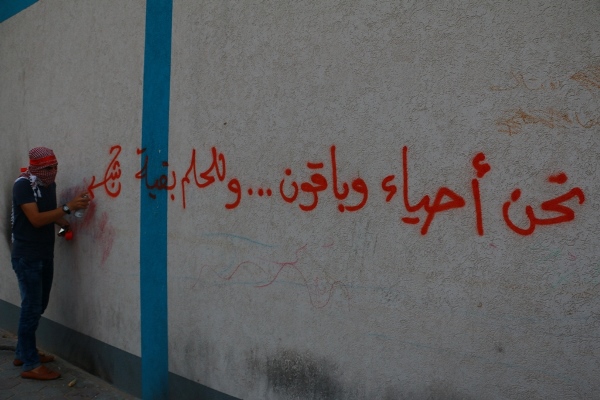 نحن أحياء وباقون... وللحلم بقية